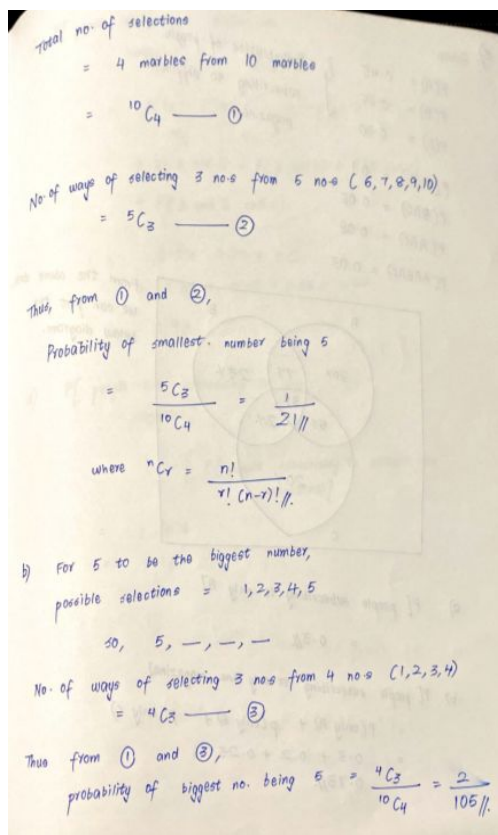 Total no. of selections
= 4 marbles from 10 marbles
= ¹⁰C₄ —— ①
No. of ways of selecting 3 no.s from 5 no.s (6,7,8,9,10)
= ⁵C₃ —— ②
Thus, from ① and ②,
Probability of smallest number being 5
= ⁵C₃ / ¹⁰C₄ = 1/21//
where ⁿCr = n! / r! (n-r)! //.
b) For 5 to be the biggest number,
possible selections = 1,2,3,4,5
so, 5, —, —, —
No. of ways of selecting 3 no.s from 4 no.s (1,2,3,4)
= ⁴C₃ —— ③
Thus from ① and ③,
probability of biggest no. being 5 = ⁴C₃ / ¹⁰C₄ = 2/105//.